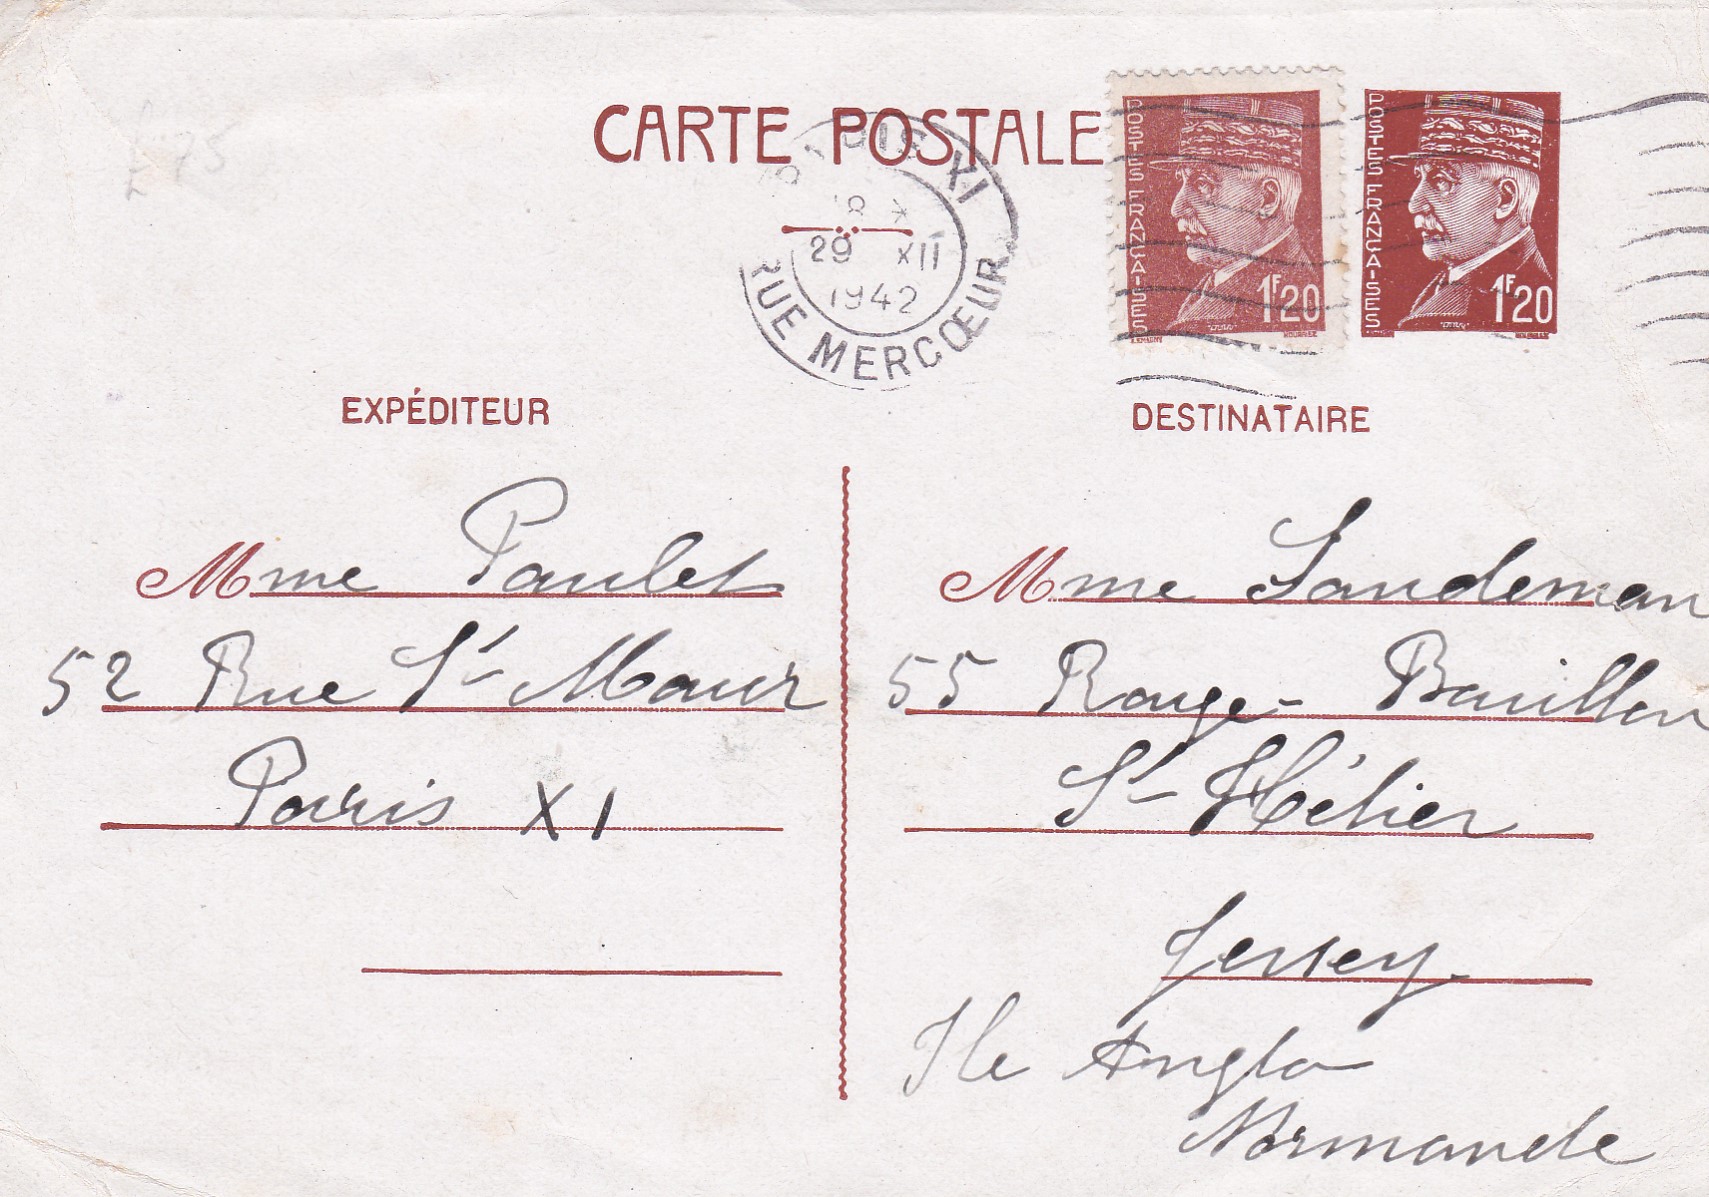 £75
CARTE POSTALE
PARIS XI
18
29 XII
1942
RUE MERCŒUR
POSTES FRANÇAISES
1F20
POSTES FRANÇAISES
1F20
EXPÉDITEUR
Mme Paulet
52 Rue St-Maur
Paris XI
DESTINATAIRE
Mme Sandeman
55 Rouge-Bouillon
St-Hélier
Jersey
Ile Anglo
Normande